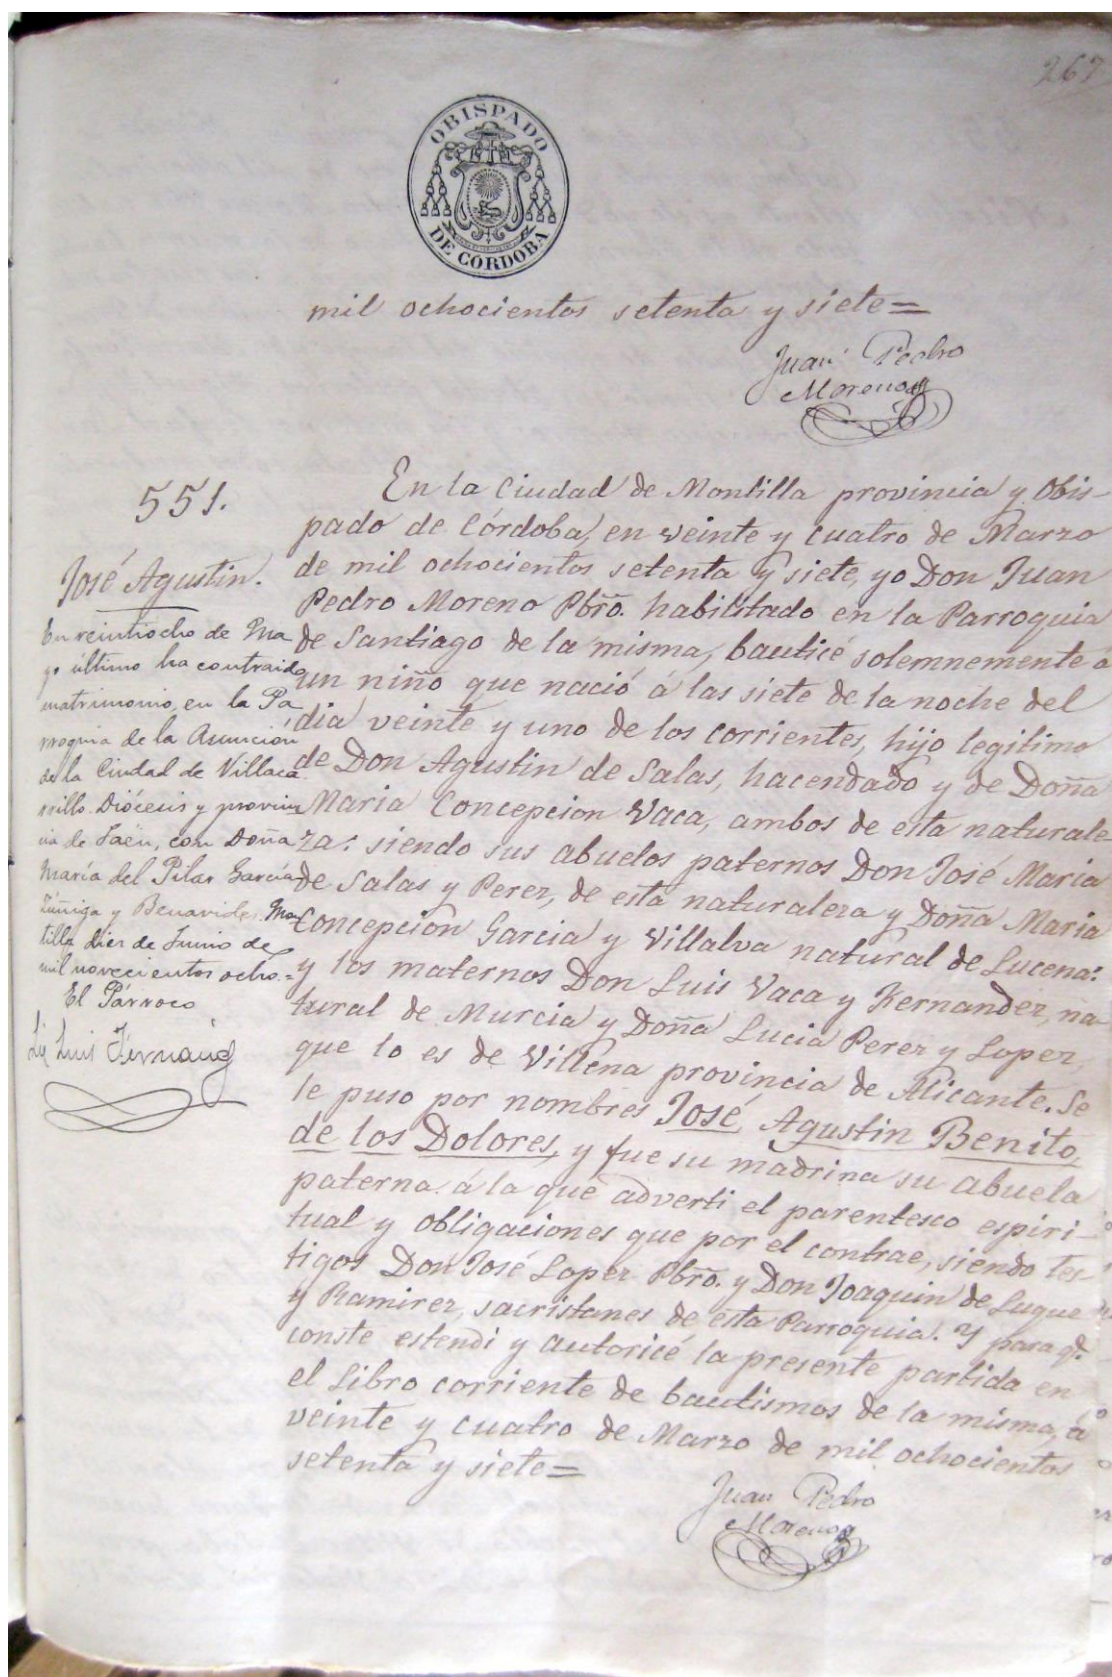 267
OBISPADO
DE CÓRDOBA
mil ochocientos setenta y siete=
Juan Pedro
Moreno
551.
José Agustin.
En veintiocho de Ma
yo último ha contraido
matrimonio, en la Pa
rroquia de la Asunción
de la Ciudad de Villaca
rrillo. Diócesis y provin
cia de Jaén, con Doña
María del Pilar García
Zúñiga y Benavides. Mon
tilla diez de Junio de
mil novecientos ocho.=
El Párroco
Luis Fernand
En la Ciudad de Montilla provincia y Obis-
pado de Córdoba, en veinte y cuatro de Marzo
de mil ochocientos setenta y siete, yo Don Juan
Pedro Moreno Pbro. habilitado en la Parroquia
de Santiago de la misma, bauticé solemnemente á
un niño que nació á las siete de la noche del
dia veinte y uno de los corrientes, hijo legitimo
de Don Agustin de Salas, hacendado y de Doña
Maria Concepcion Vaca, ambos de esta naturale-
za: siendo sus abuelos paternos Don José Maria
de Salas y Perez, de esta naturaleza y Doña Maria
Concepcion Garcia y Villalva natural de Lucena:
y los maternos Don Luis Vaca y Hernandez, na-
tural de Murcia y Doña Lucia Perez y Lopez,
que lo es de Villena provincia de Alicante. Se
le puso por nombres José, Agustin Benito,
de los Dolores, y fue su madrina su abuela
paterna. á la que adverti el parentesco espiri-
tual y obligaciones que por el contrae, siendo tes-
tigos Don José Lopez Pbro. y Don Joaquin de Luque
y Ramirez, sacristanes de esta Parroquia. Y para qe.
conste estendi y autoricé la presente partida en
el Libro corriente de bautismos de la misma, á
veinte y cuatro de Marzo de mil ochocientos
setenta y siete=
Juan Pedro
Moreno